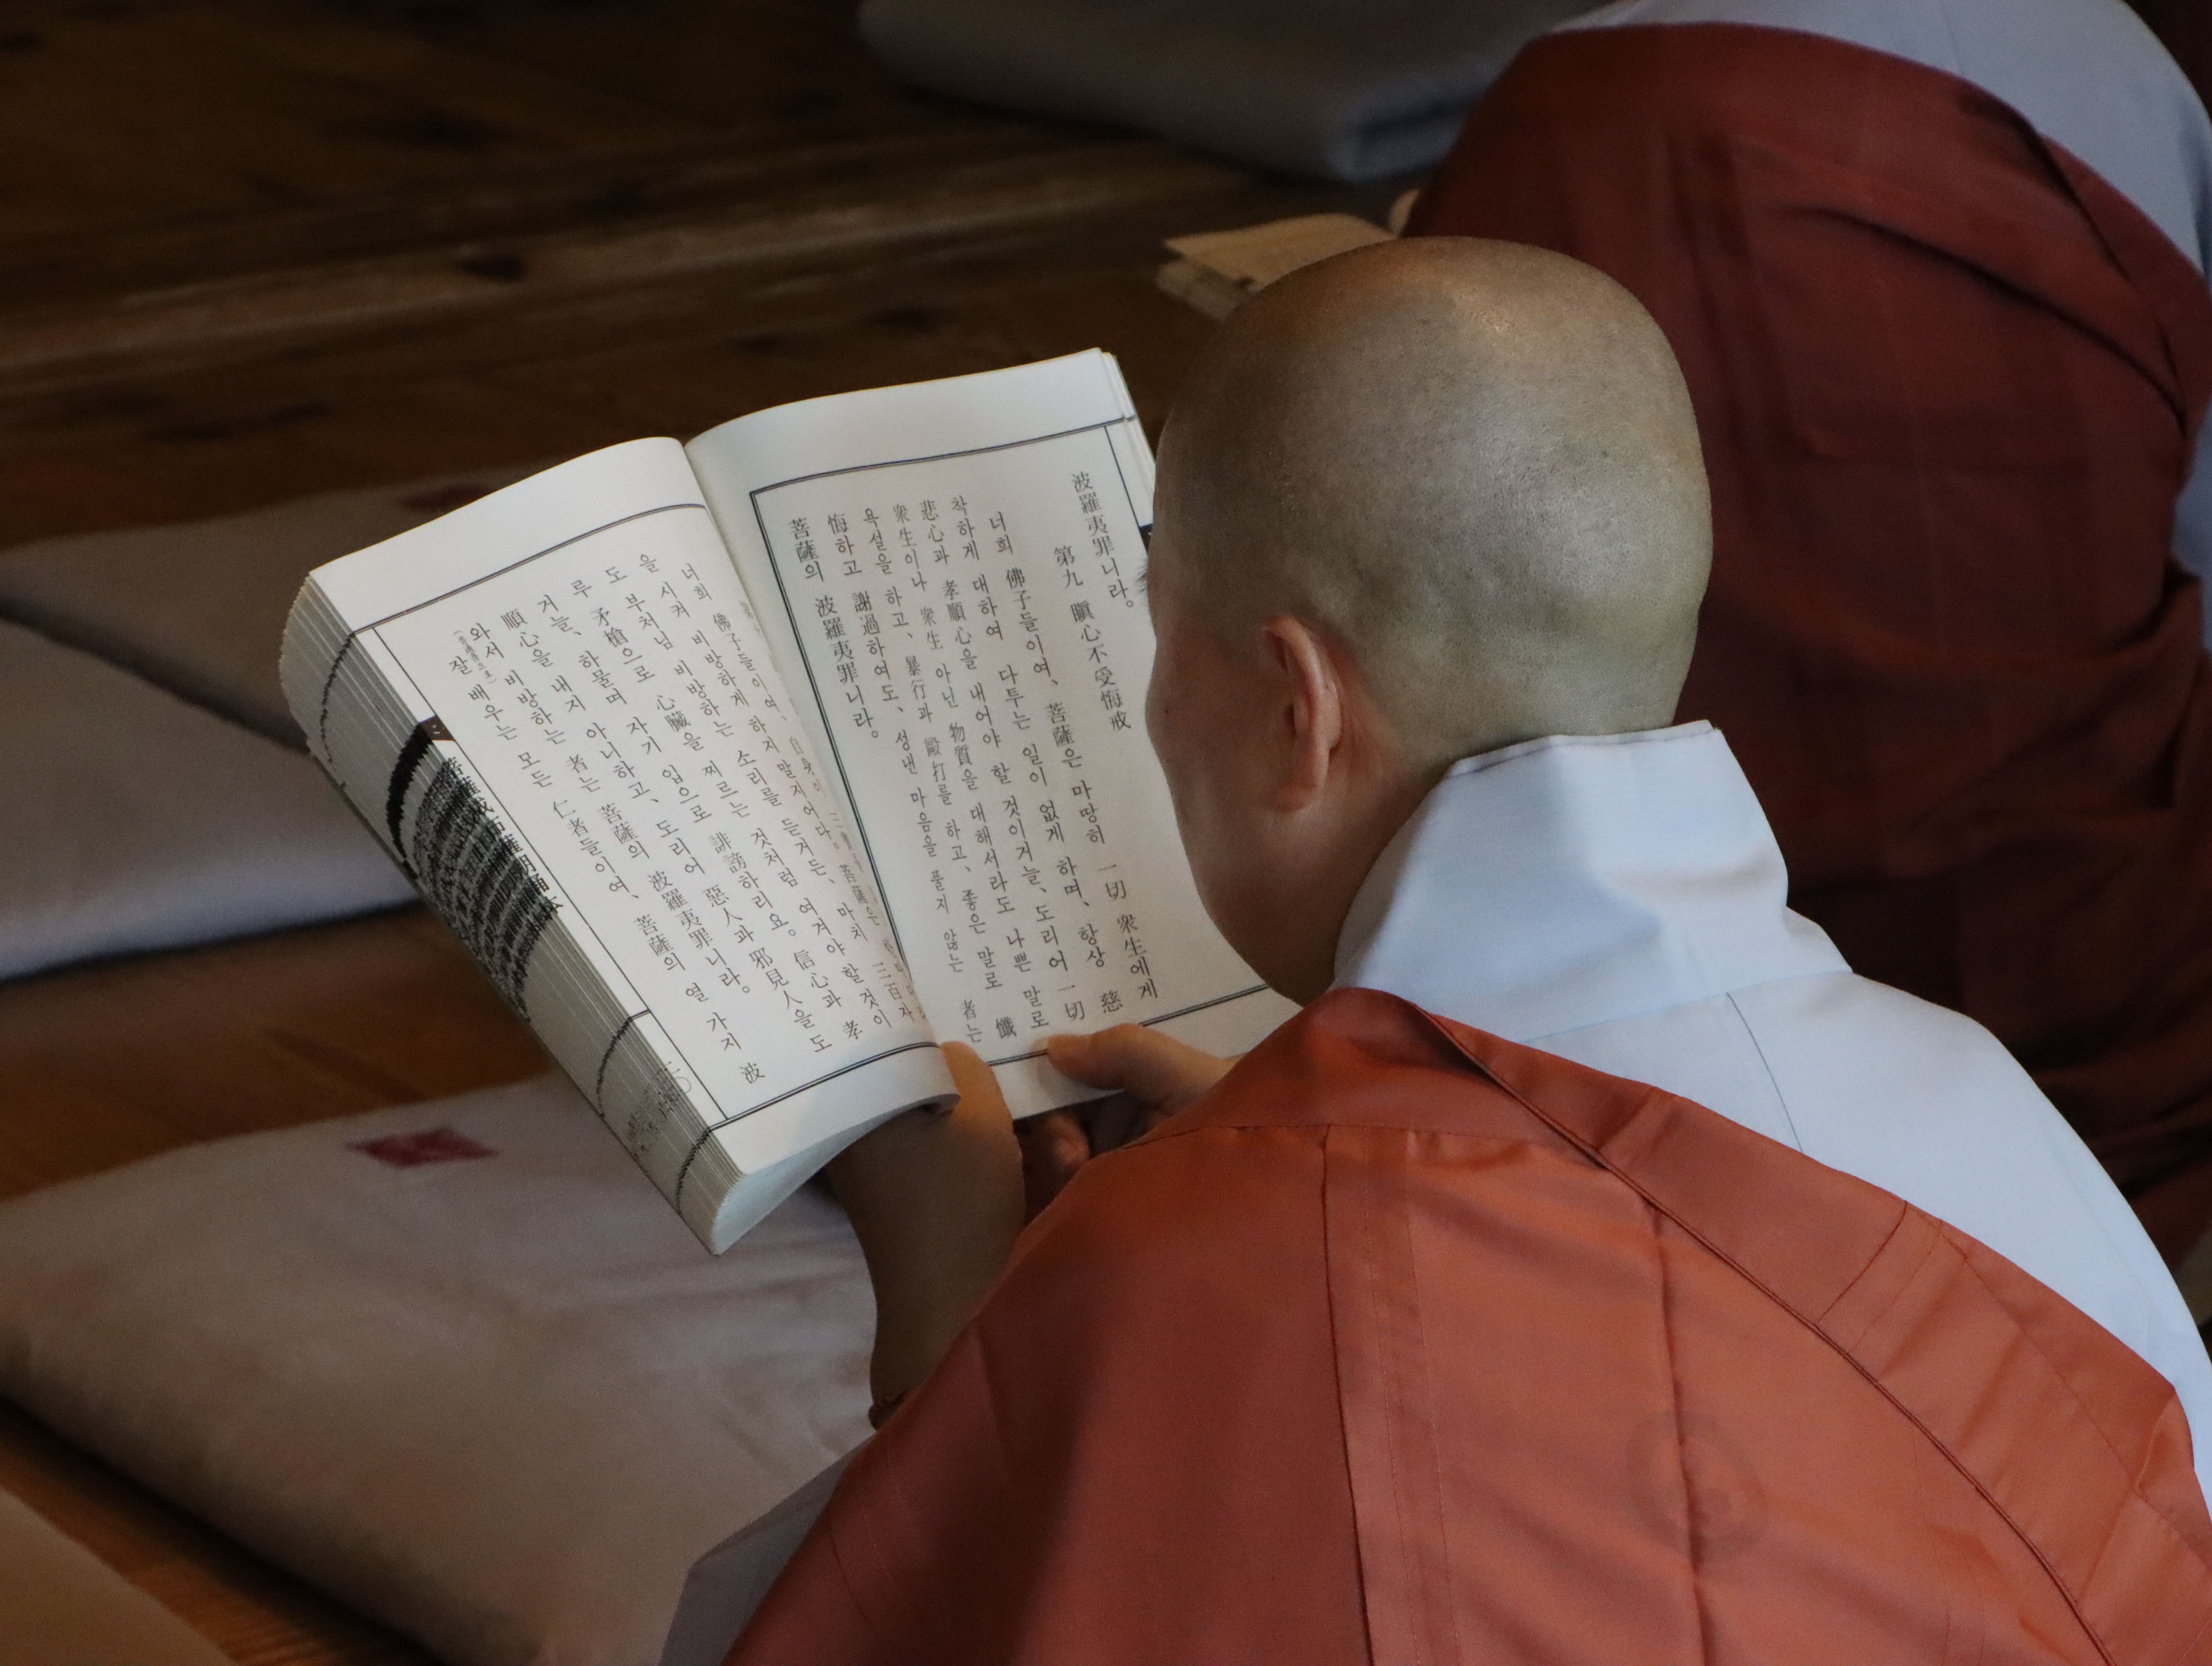 波羅夷罪니라。
第九 瞋心不受悔戒
너희 佛子들이여、菩薩은 마땅히 一切 衆生에게
착하게 대하여 다투는 일이 없게 하며、항상 慈
悲心과 孝順心을 내어야 할 것이거늘、도리어 一切
衆生이나 衆生 아닌 物質을 대해서라도 나쁜 말로
욕설을 하고、暴行과 毆打를 하고、좋은 말로 懺
悔하고 謝過하여도、성낸 마음을 풀지 않는 者는
菩薩의 波羅夷罪니라。
너희 佛子들이여、菩薩은
을 시켜 비방하게 하지 말지어다。 三百자
도 부처님 비방하는 소리를 듣거든、마치
루 矛槍으로 心臟을 찌르는 것처럼 여겨야 할 것이
거늘、하물며 자기 입으로 誹謗하리요。信心과 孝
順心을 내지 아니하고、도리어 惡人과 邪見人을 도
와서 비방하는 者는 菩薩의 波羅夷罪니라。
잘 배우는 모든 仁者들이여、菩薩의 열 가지 波